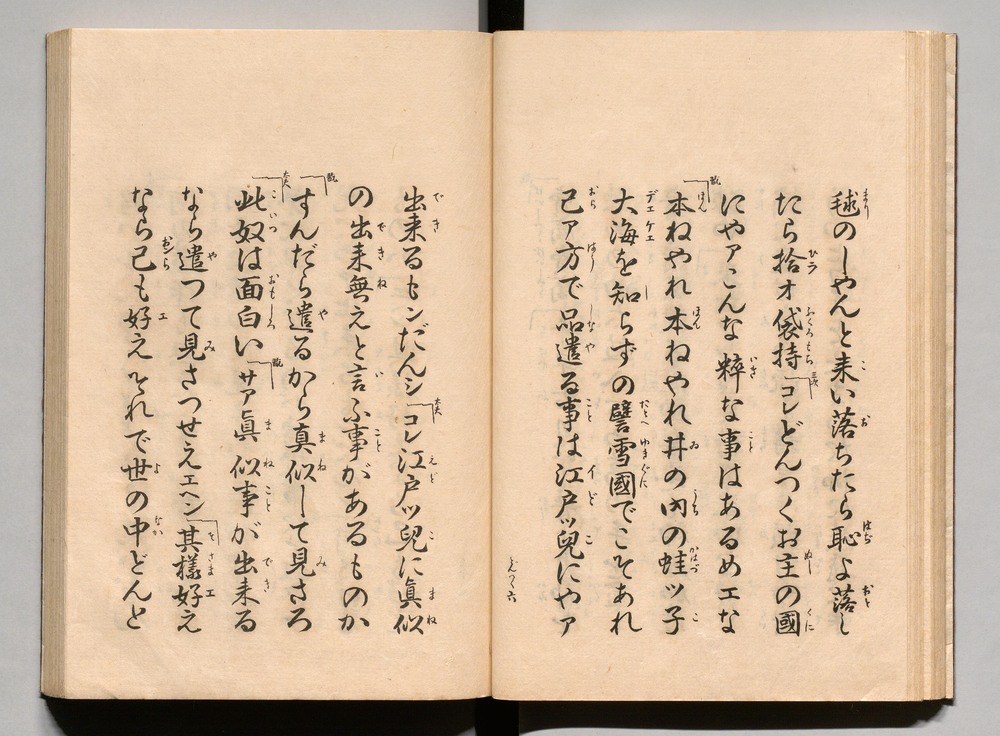 毬のしやんと来い落ちたら恥よ落し
たら拾オ袋持「コレどんつくお主の國
にやアこんな粋な事はあるめエな
「本ねやれ本ねやれ井の内の蛙ツ子
大海を知らずの譬雪國でこそあれ
己ア方で品遣る事は江戸ツ兒にやア
出来るもンだんシ「コレ江戸ツ兒に眞似
の出来無えと言ふ事があるものか
「すんだら遣るから真似して見さろ
「此奴は面白い「サア眞似事が出来る
なら遣つて見さつせえエヘン「其樣好え
なら己も好えそれで世の中どんと